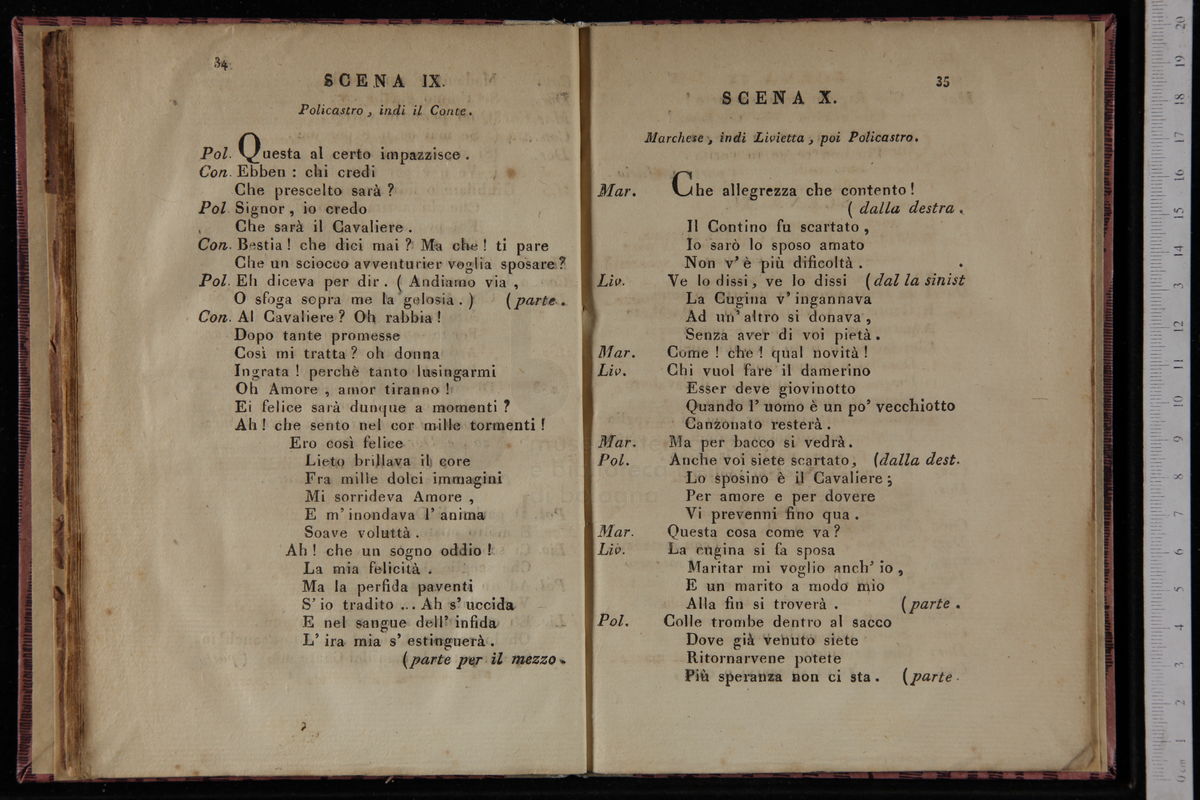 34
SCENA IX.
Policastro, indi il Conte.
Pol. Questa al certo impazzisce.
Con. Ebben : chi credi
Che prescelto sarà ?
Pol. Signor, io credo
Che sarà il Cavaliere.
Con. Bestia ! che dici mai ? Ma che ! ti pare
Che un sciocco avventurier voglia sposare ?
Pol. Eh diceva per dir. ( Andiamo via,
O sfoga sopra me la gelosia. ) (parte.
Con. Al Cavaliere ? Oh rabbia !
Dopo tante promesse
Così mi tratta ? oh donna
Ingrata ! perchè tanto lusingarmi
Oh Amore, amor tiranno !
Ei felice sarà dunque a momenti ?
Ah ! che sento nel cor mille tormenti !
Ero così felice
Lieto brillava il core
Fra mille dolci immagini
Mi sorrideva Amore,
E m' inondava l' anima
Soave voluttà.
Ah ! che un sogno oddio !
La mia felicità.
Ma la perfida paventi
S' io tradito ... Ah s' uccida
E nel sangue dell' infida
L' ira mia s' estinguerà.
(parte per il mezzo.
35
SCENA X.
Marchese, indi Livietta, poi Policastro.
Mar. Che allegrezza che contento !
( dalla destra.
Il Contino fu scartato,
Io sarò lo sposo amato
Non v' è più dificoltà.
Liv. Ve lo dissi, ve lo dissi (dal la sinist
La Cugina v' ingannava
Ad un' altro si donava,
Senza aver di voi pietà.
Mar. Come ! che ! qual novità !
Liv. Chi vuol fare il damerino
Esser deve giovinotto
Quando l' uomo è un po' vecchiotto
Canzonato resterà.
Mar. Ma per bacco si vedrà.
Pol. Anche voi siete scartato, (dalla dest.
Lo sposino è il Cavaliere ;
Per amore e per dovere
Vi prevenni fino qua.
Mar. Questa cosa come va ?
Liv. La cugina si fa sposa
Maritar mi voglio anch' io,
E un marito a modo mio
Alla fin si troverà. (parte.
Pol. Colle trombe dentro al sacco
Dove già venuto siete
Ritornarvene potete
Più speranza non ci sta. (parte.